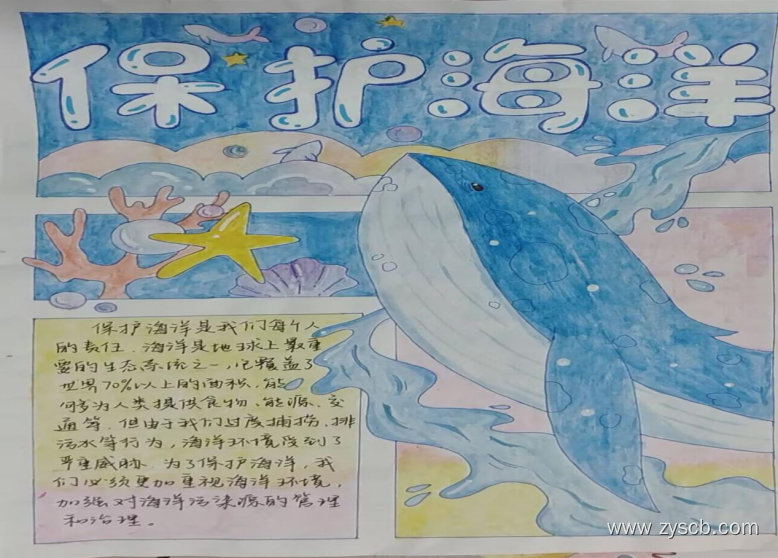 保护海洋
保护海洋是我们每个人
的责任.海洋是地球上最重
要的生态系统之一,它覆盖了
世界70%以上的面积.能
何多为人类提供食物、能源、交
通等.但由于我们过度捕捞、排
污水等行为,海洋环境受到了
严重威胁.为了保护海洋,我
们必须更加重视海洋环境,
加强对海洋污染源的管理
和治理。
www.zyscb.com